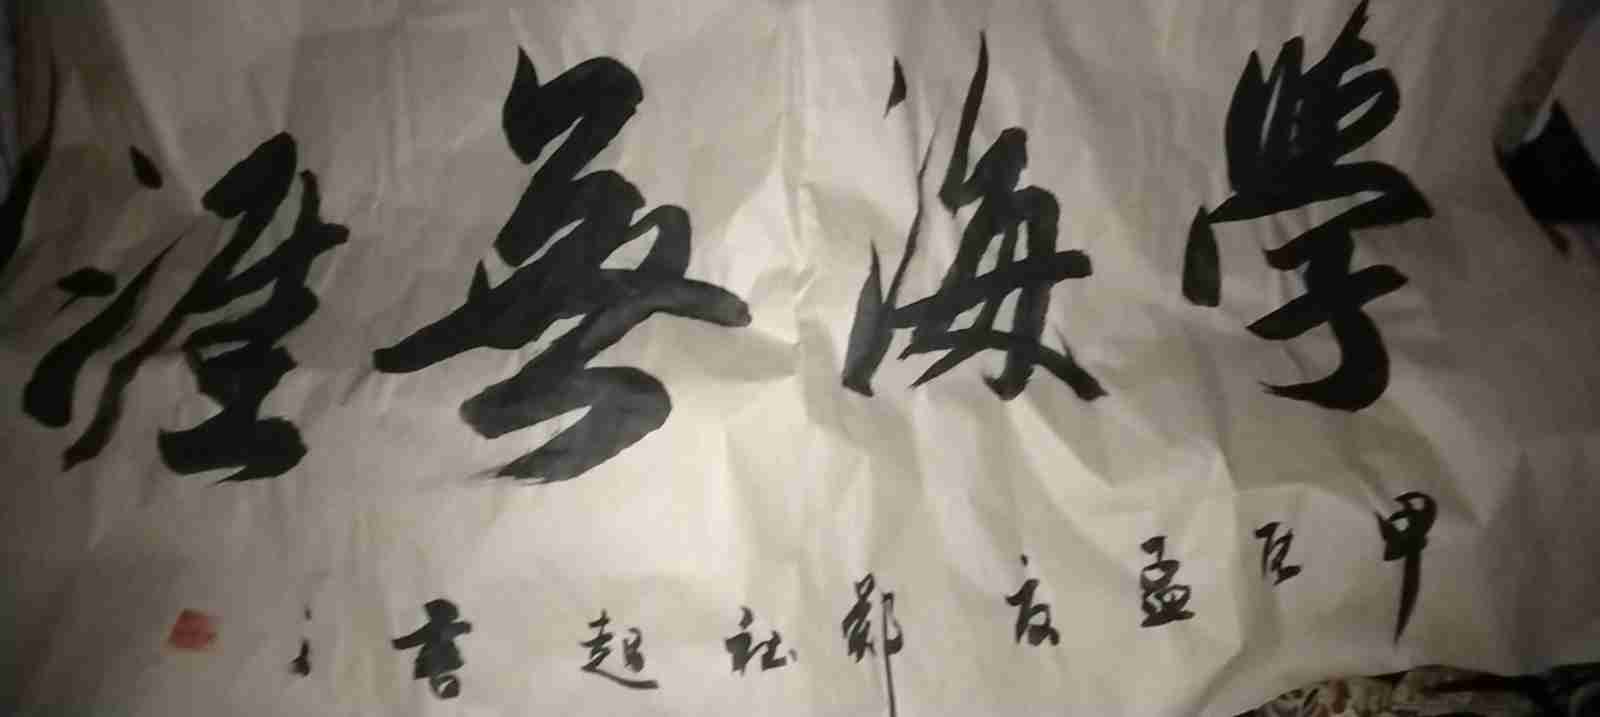 學海無涯
甲辰孟夏鄭社起書